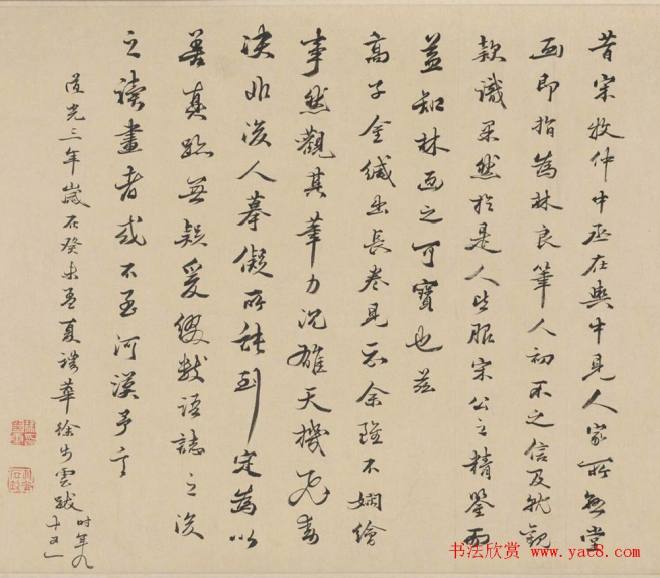 昔宋牧仲中丞在輿中見人家所懸堂
画即指為林良筆人初不之信及就觀
款識果然於是人皆服宋公之精鑒而
益知林画之可寶也茲
高子金緘出長卷見示余雖不嫻繪
事然觀其筆力沉雄天機飛動
决非後人摹儗所能到定為以
善真跡無疑爰綴数語誌之後
之讀畫者或不至河漢予言
道光三年歲在癸未孟夏禮華徐步雲跋
时年九
十又一
书法欣赏 www.yac8.com